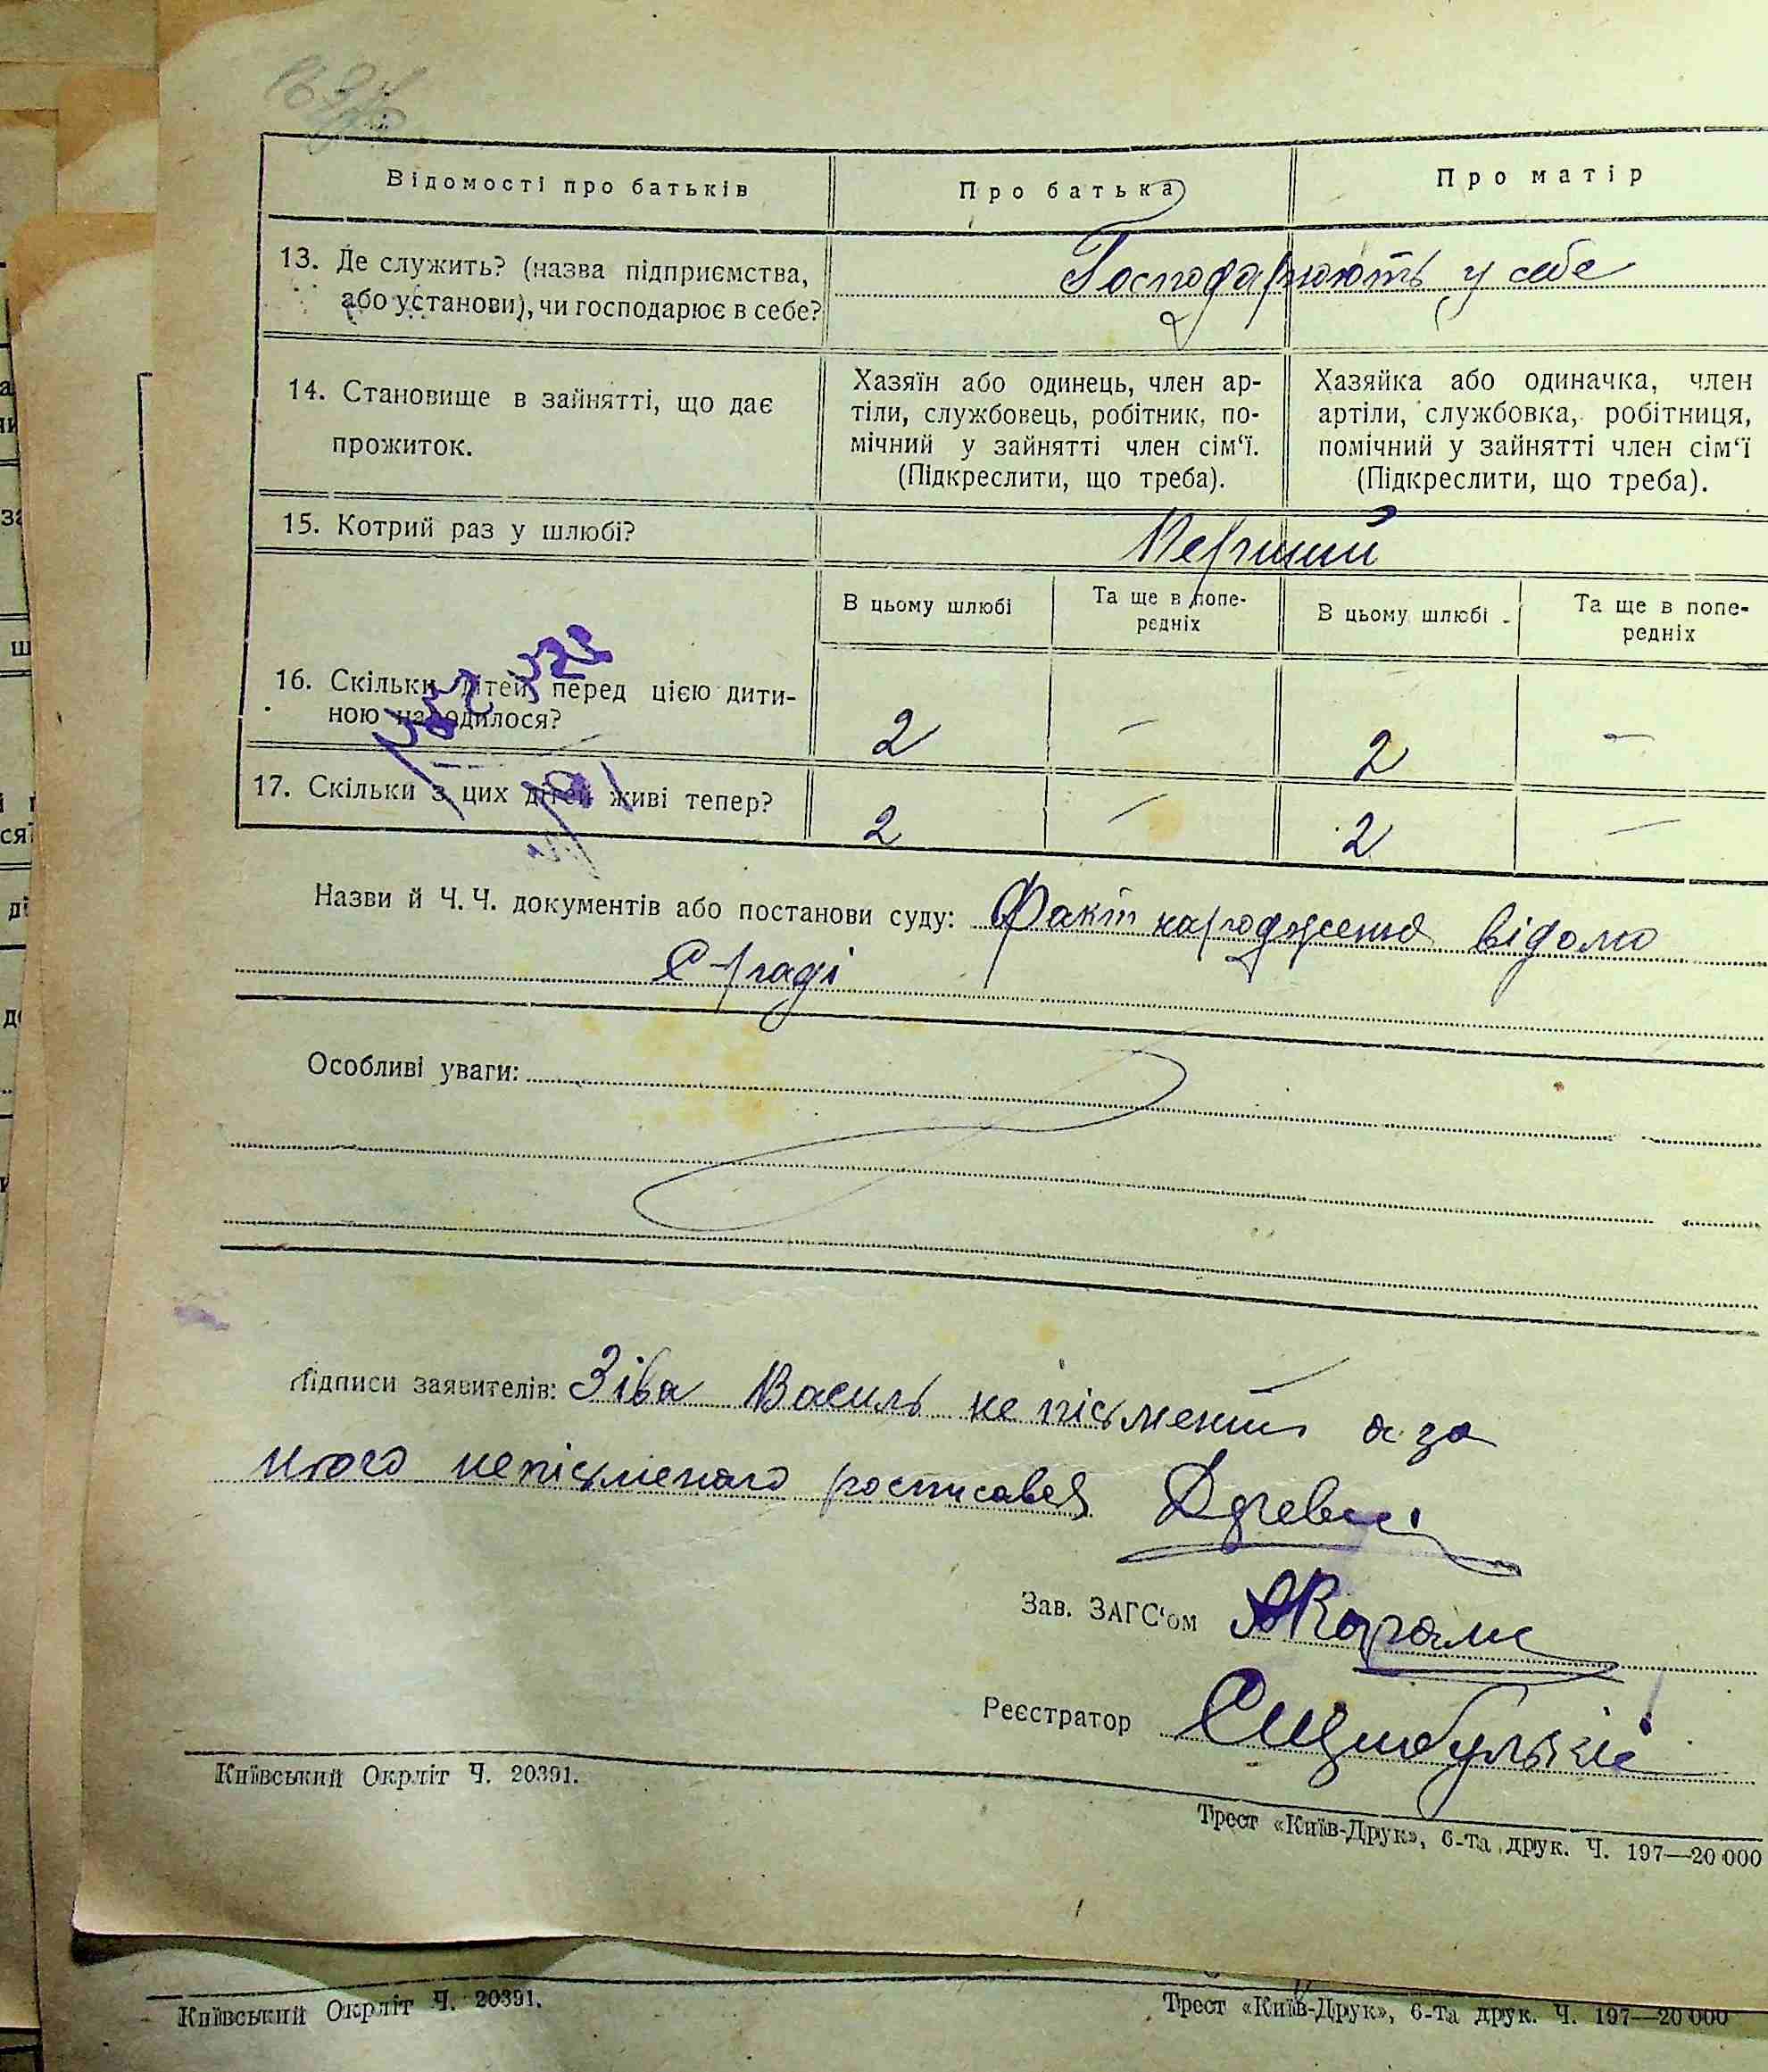 Відомості про батьків
Про батька
Про матір
13. Де служить? (назва підприємства,
або установи), чи господарює в себе?
Господарюють у себе
14. Становище в зайнятті, що дає
прожиток.
Хазяїн або одинець, член ар-
тіли, службовець, робітник, по-
мічний у зайнятті член сім‘ї.
(Підкреслити, що треба).
Хазяйка або одиначка, член
артіли, службовка, робітниця,
помічний у зайнятті член сім‘ї
(Підкреслити, що треба).
15. Котрий раз у шлюбі?
Перший
В цьому шлюбі
Та ще в попе-
редніх
В цьому шлюбі
Та ще в попе-
редніх
16. Скільки дітей перед цією дити-
ною народилося?
2 — 2 —
17. Скільки з цих дітей живі тепер?
2 — 2 —
Назви й Ч. Ч. документів або постанови суду: Факт народження відомо
С-/раді
Особливі уваги:
Підписи заявителів: Зіва Василь не пісьмений а за
нього непісьменого росписався
Зав. ЗАГС‘ом
Реєстратор
Київський Окрліт Ч. 20391.
Трест «Київ-Друк», 6-та друк. Ч. 197—20 000
Київський Окрліт Ч. 20391.
Трест «Київ-Друк», 6-та друк. Ч. 197—20 000